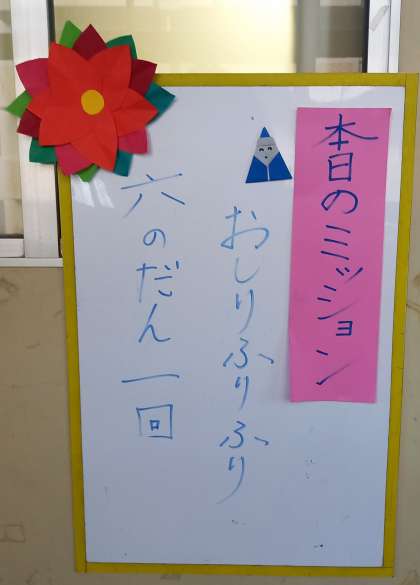 本日のミッション
おしりふりふり
六のだん一回